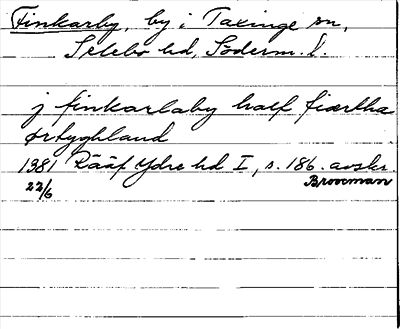 Finkarby, by i Taxinge sn,
Selebo hd, Söderm. l.
j finkarlaby half fiærtha
ørtyghland
1381 Rääf Ydre hd I, s. 186. avskr.
22/6 Broocman